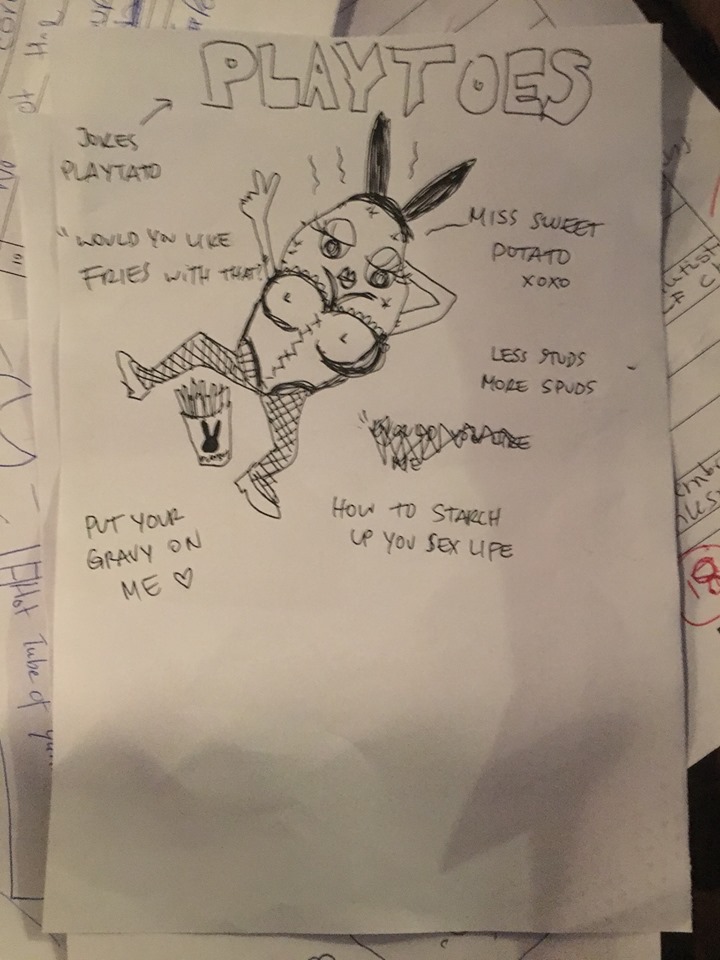 PLAYTOES
JOKES
PLAYTATO
"WOULD YOU LIKE
FRIES WITH THAT?"
MISS SWEET
POTATO
XOXO
LESS STUDS
MORE SPUDS
ME
PUT YOUR
GRAVY ON
ME ♡
HOW TO STARCH
UP YOU SEX LIFE
Hot Tube of